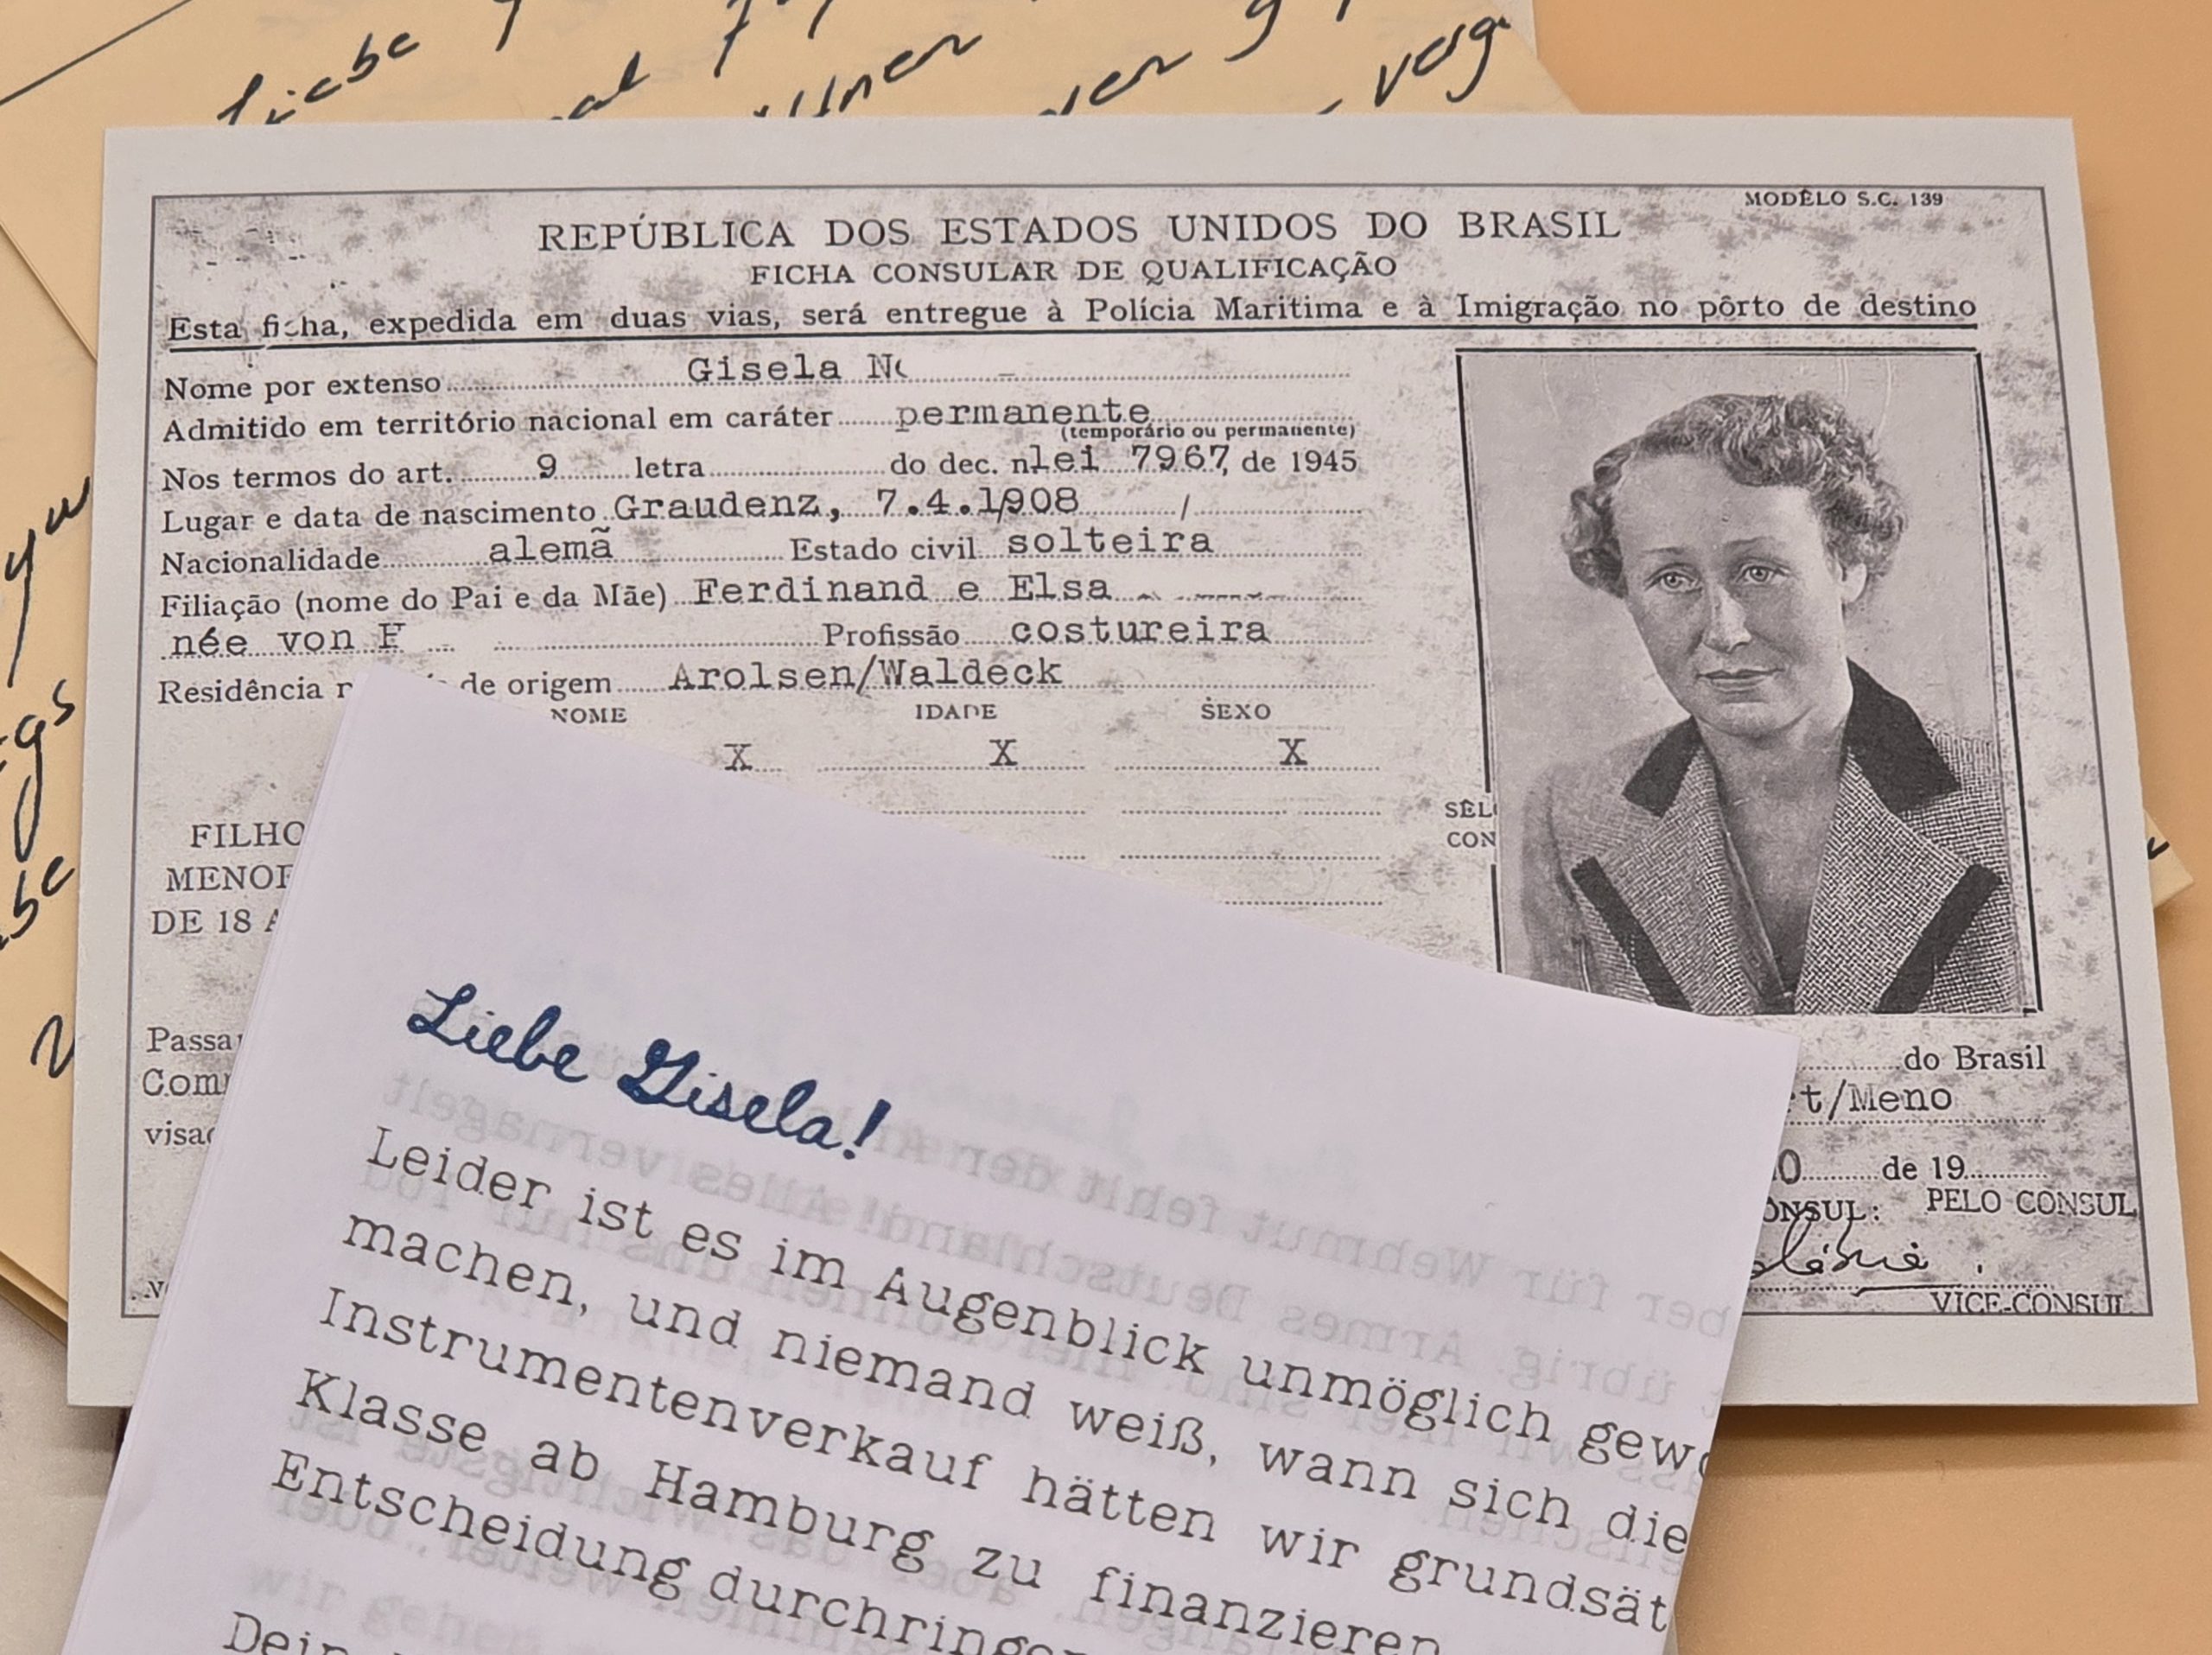 liebe
verg
MODÊLO S.C. 139
REPÚBLICA DOS ESTADOS UNIDOS DO BRASIL
FICHA CONSULAR DE QUALIFICAÇÃO
Esta ficha, expedida em duas vias, será entregue à Polícia Maritima e à Imigração no pôrto de destino
Nome por extenso Gisela
Admitido em território nacional em caráter permanente
(temporário ou permanente)
Nos termos do art. 9 letra do dec. nlei 7967, de 1945
Lugar e data de nascimento Graudenz, 7.4.1908
Nacionalidade alemã Estado civil solteira
Filiação (nome do Pai e da Mãe) Ferdinand e Elsa
née von Profissão costureira
Residência de origem Arolsen/Waldeck
NOME IDADE SEXO
X X X
SÊL
CON
FILHO
MENOR
DE 18 A
Passa
Com
visad
do Brasil
t/Meno
0 de 19
ONSUL: PELO CONSUL
VICE-CONSUL
Liebe Gisela!
Leider ist es im Augenblick unmöglich gew
machen, und niemand weiß, wann sich die
Instrumentenverkauf hätten wir grundsät
Klasse ab Hamburg zu finanzieren
Entscheidung durchringen
Dein